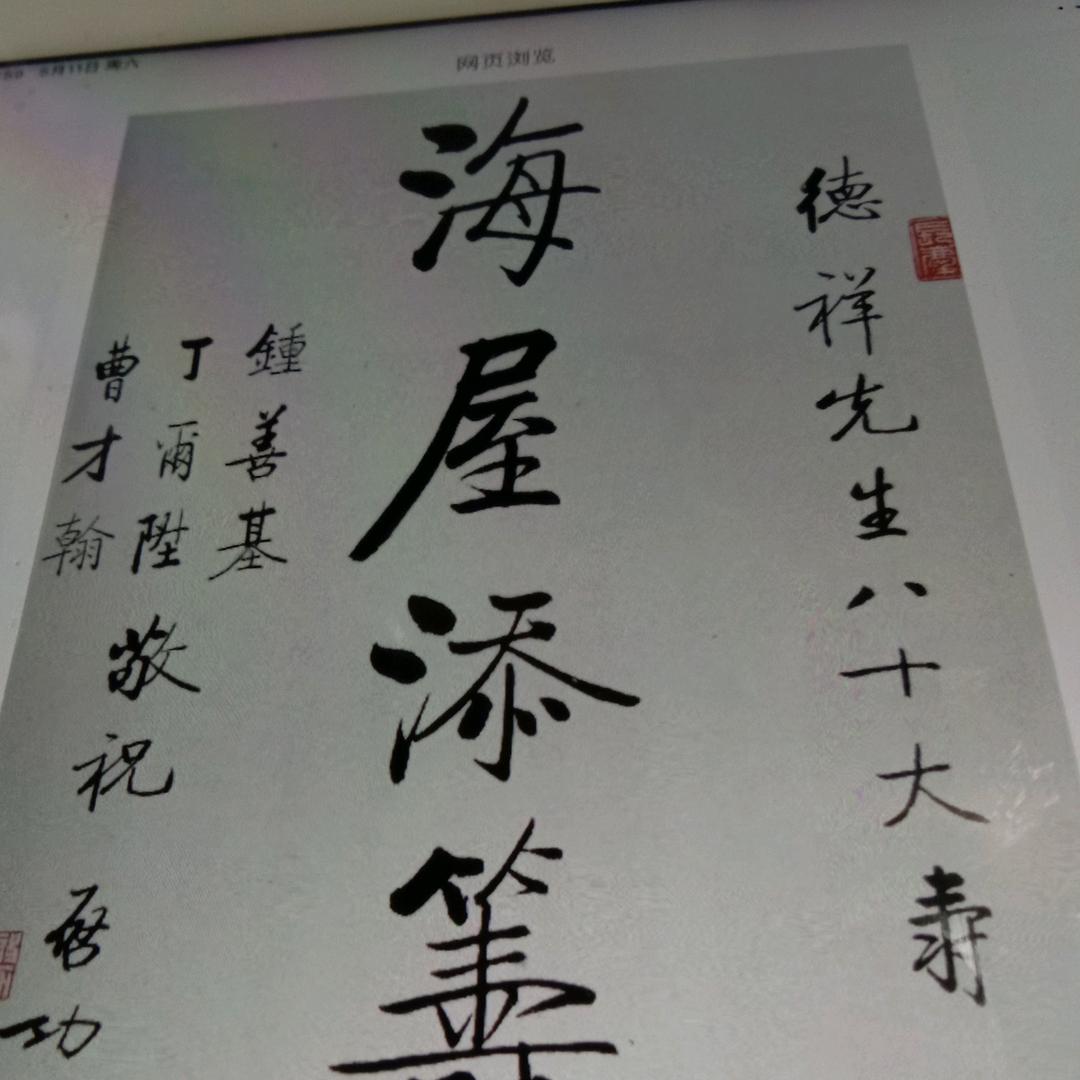 5月11日 周六
网页浏览
德祥先生八十大寿
海屋添筹
鍾善基
丁爾陞
曹才翰
敬祝
啓功